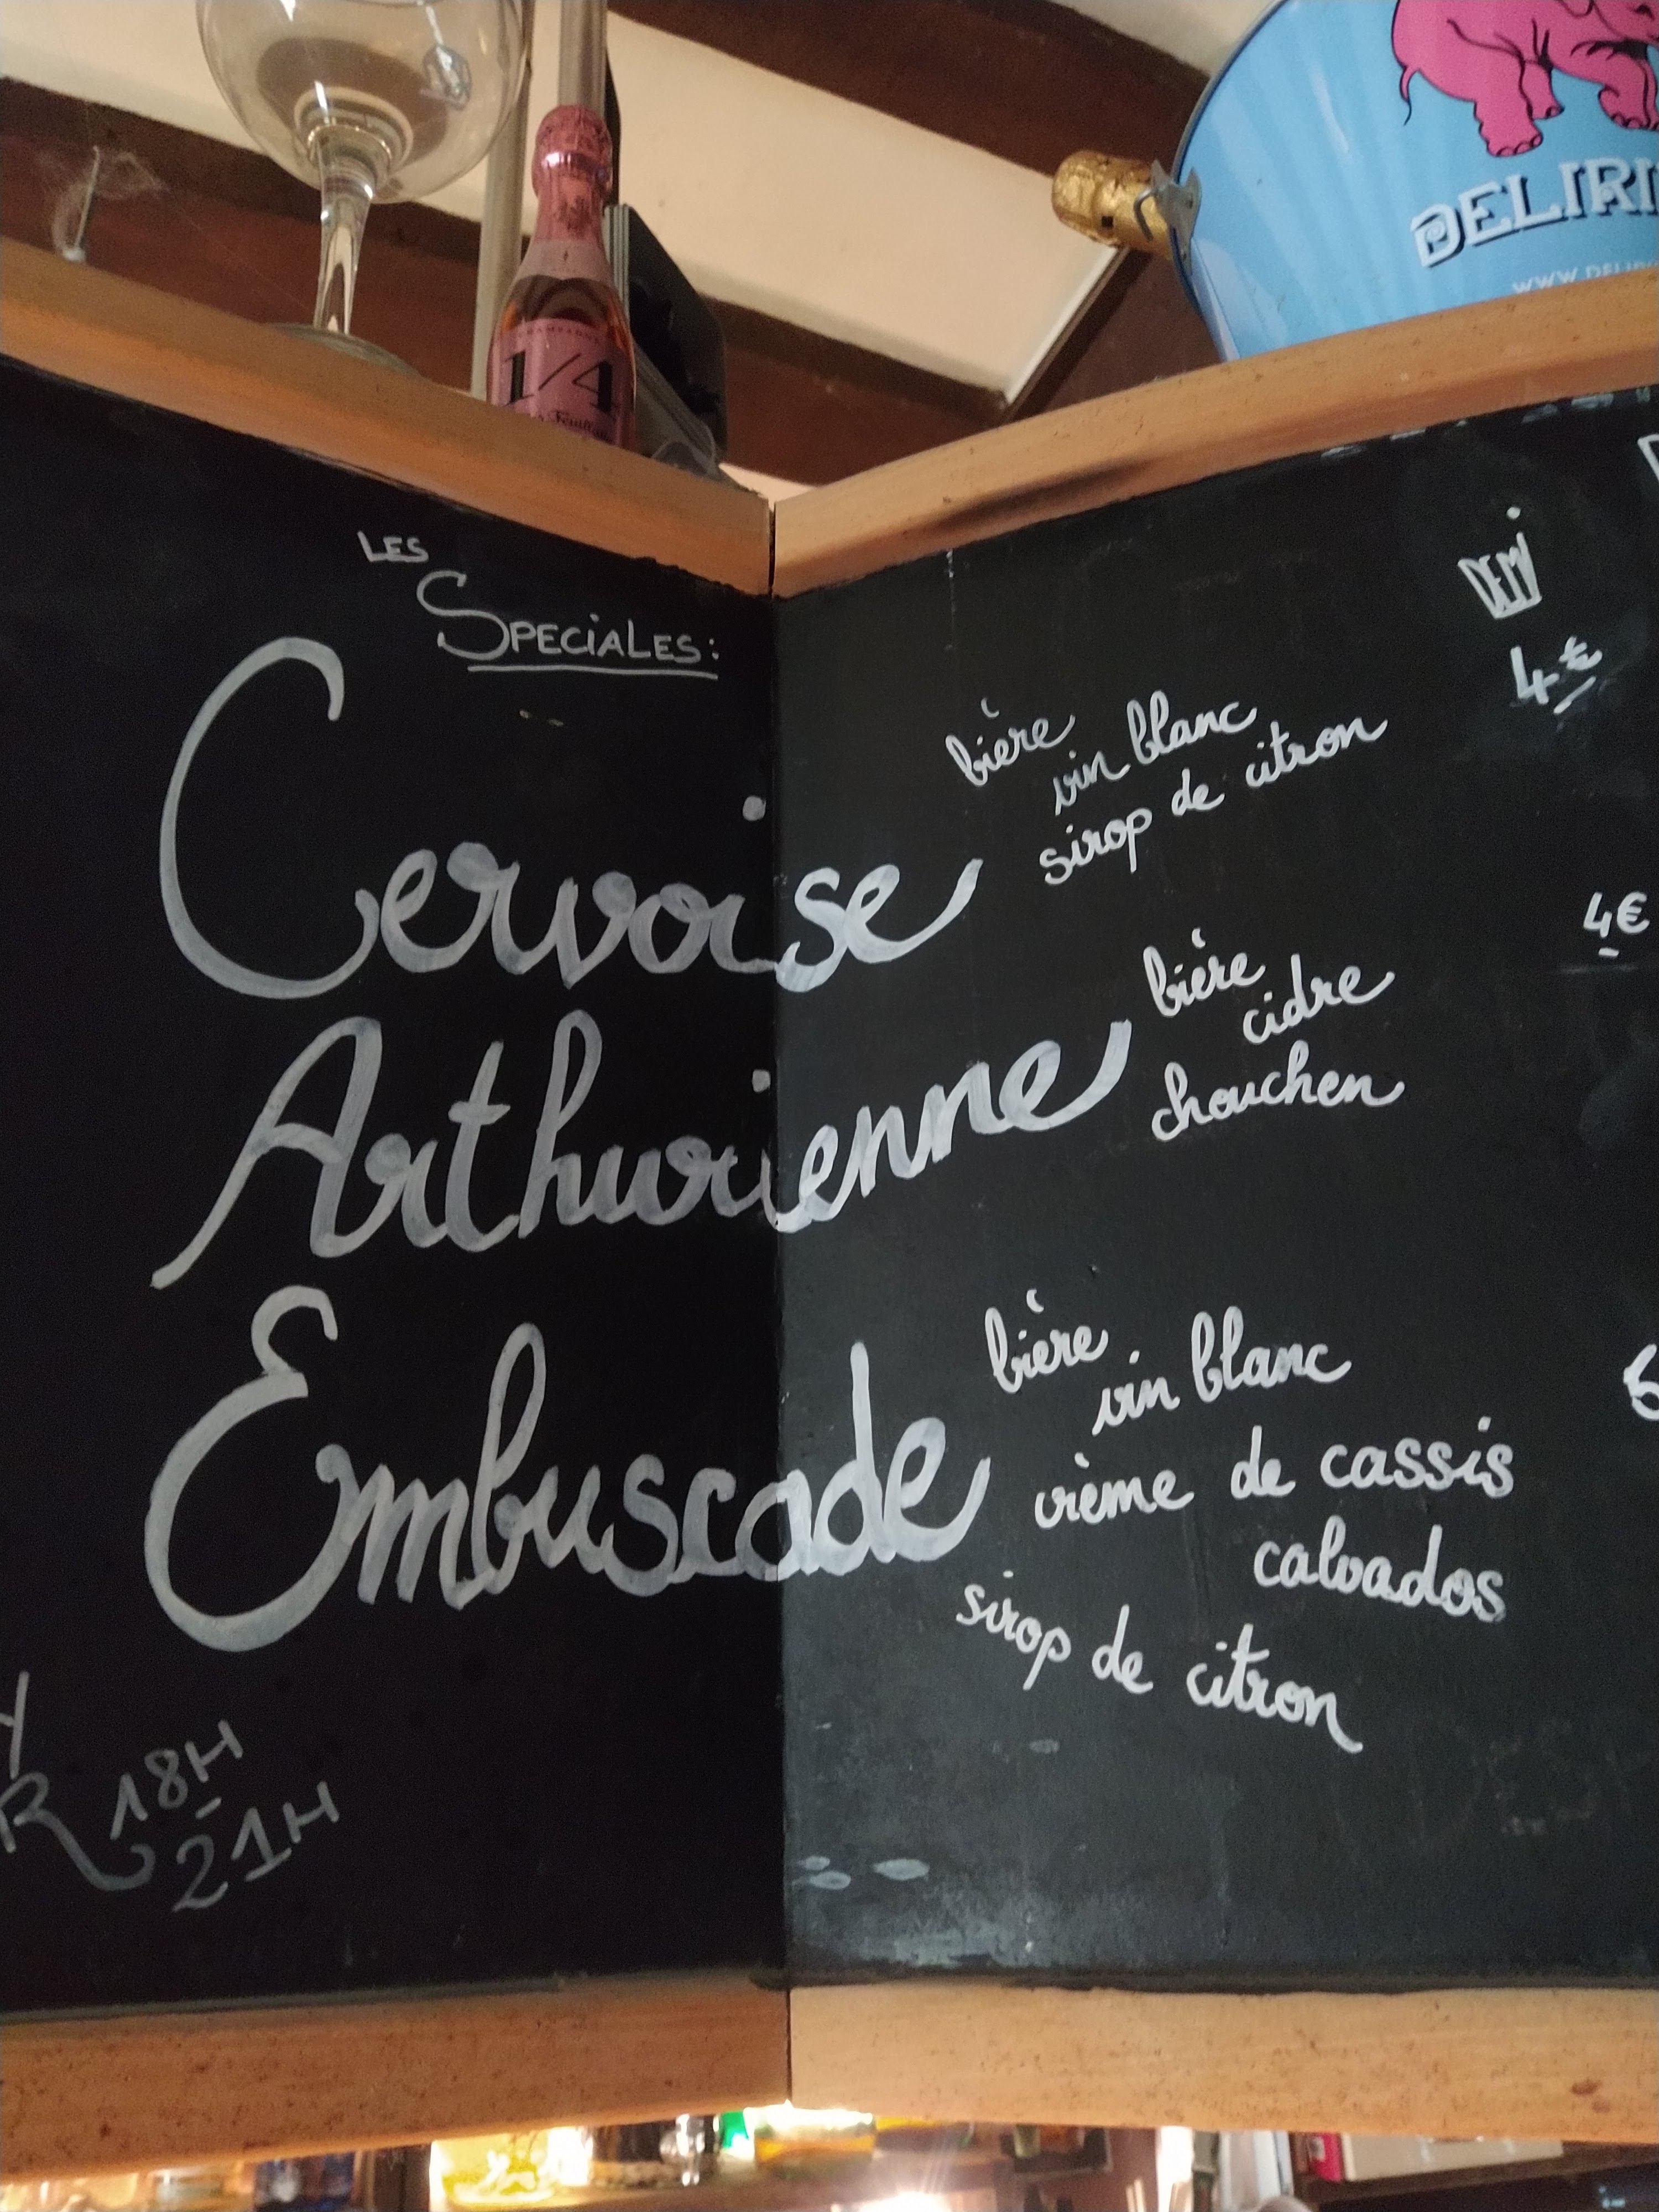 DELIRI
WWW.DELIR
1/4
LES
SPECIALES:
DEMI
4€
Cervoise
bière
vin blanc
sirop de citron
4€
Arthurienne
bière
cidre
chouchen
Embuscade
bière
vin blanc
crème de cassis
calvados
sirop de citron
Y
R 18H
21H